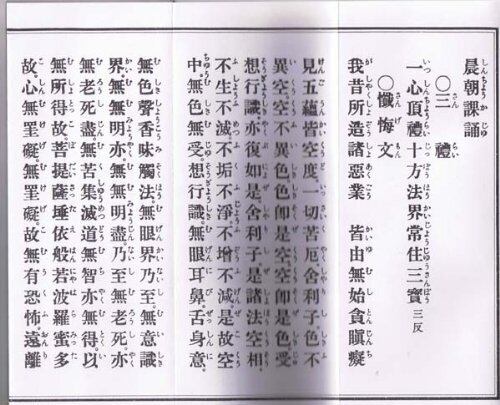 晨朝課誦
〇三禮
一心頂禮十方法界常住三寶 三反
〇懺悔文
我昔所造諸惡業 皆由無始貪瞋癡
見五蘊皆空度一切苦厄舍利子色不
異空空不異色色卽是空空卽是色受
想行識亦復如是舍利子是諸法空相。
不生不滅不垢不淨不增不減是故空
中。無色無受。想行識。無眼耳鼻舌身意。
無色聲香味觸法無眼界乃至無意識
界。無無明亦。無無明盡乃至無老死亦
無老死盡。無苦集滅道無智亦無得以
無所得故。菩提薩埵依般若波羅蜜多
故。心無罣礙。無罣礙故。無有恐怖。遠離